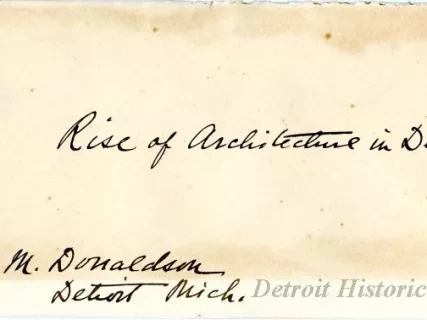 Rise of Architecture in De
M. Donaldson
Detroit Mich.
Detroit Historic